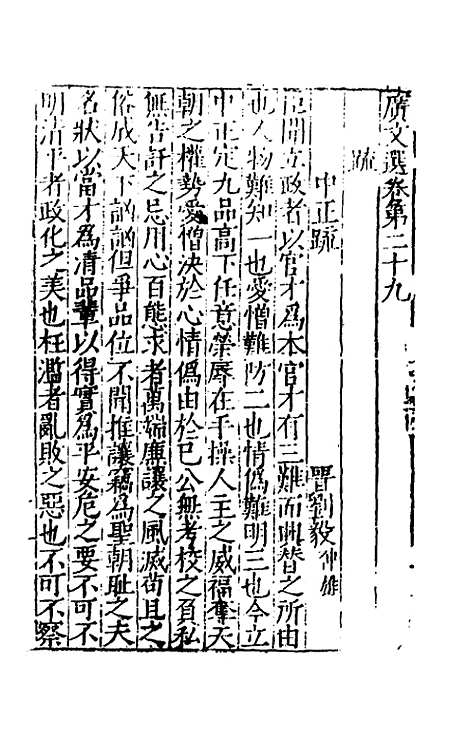 廣文選卷第二十九
疏
中正疏 晉劉毅仲雄
臣聞立政者以官才爲本官才有三難而興替之所由
也人物難知一也愛憎難防二也情僞難明三也今立
中正定九品高下任意榮辱在手操人主之威福奪天
朝之權勢愛憎決於心情僞由於己公無考校之負私
無告訐之忌用心百態求者萬端廉讓之風滅苟且之
俗成天下訩訩但爭品位不聞推讓竊爲聖朝耻之夫
名狀以當才爲清品輩以得實爲平安危之要不可不
明清平者政化之美也枉濫者亂敗之惡也不可不察